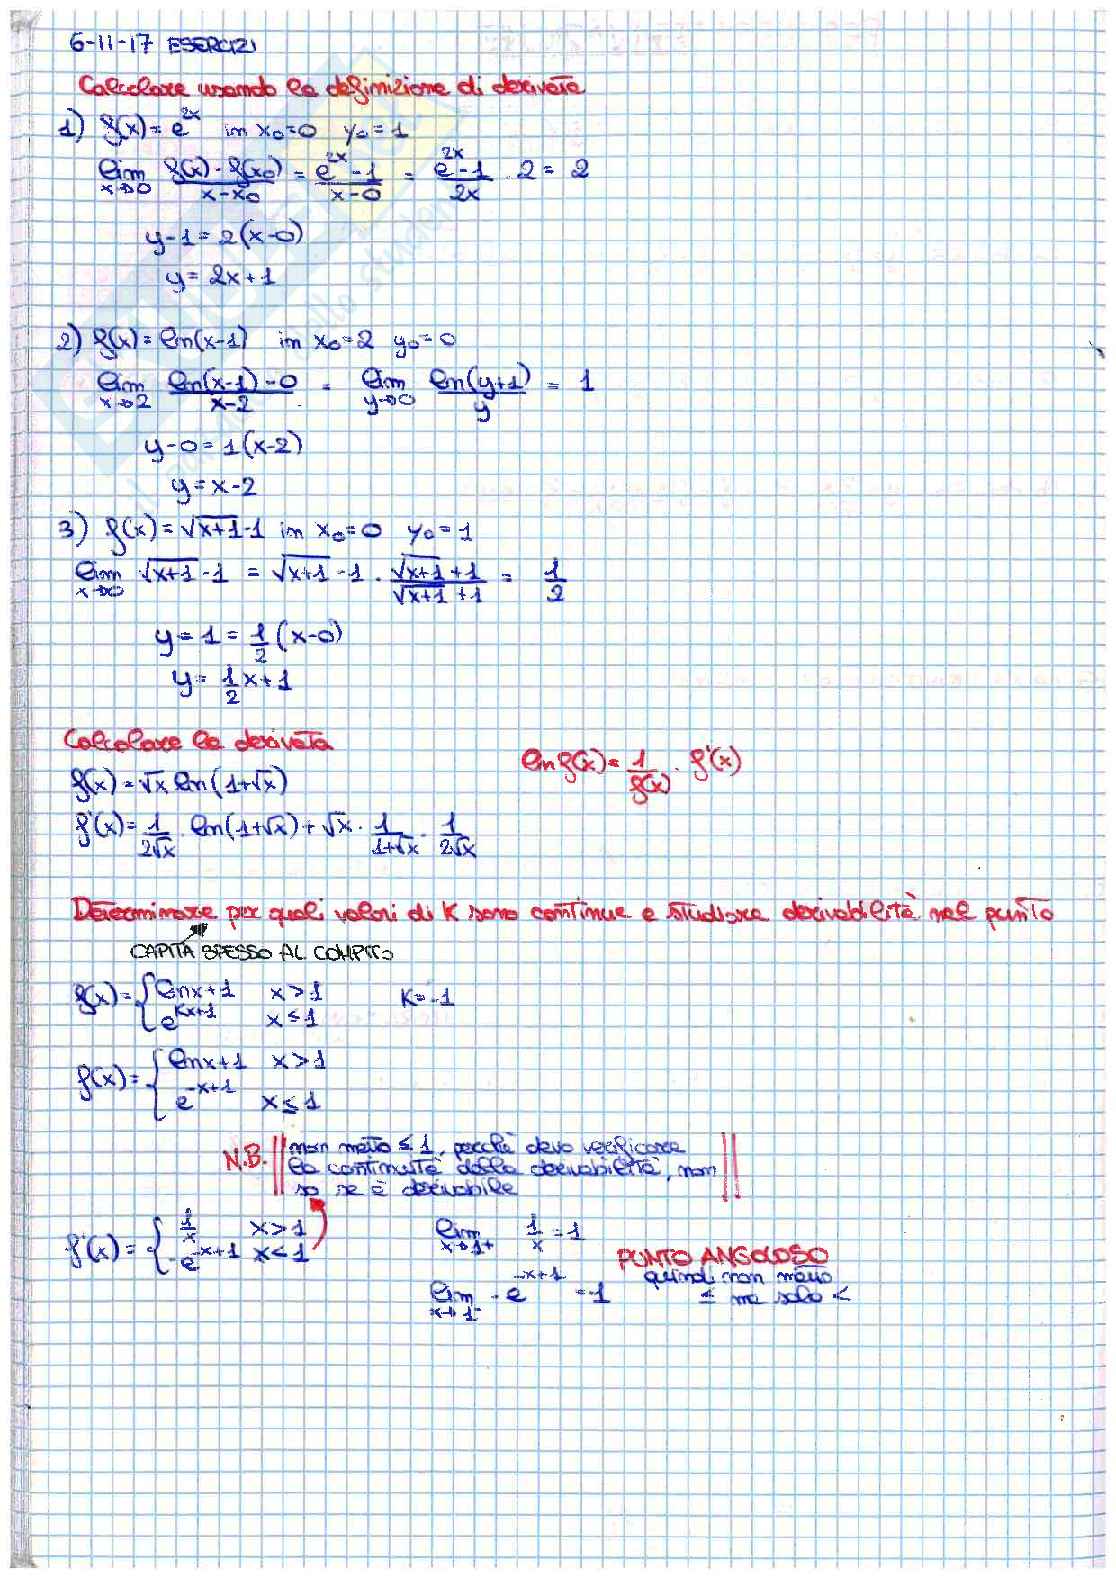 6-11-17 ESERCIZI
Calcolare usando la definizione di derivata
1) f(x) = e^2x in x0=0 y0=1
lim x→0 f(x)-f(x0)/x-x0 = e^2x-1/x-0 = e^2x-1/2x · 2 = 2
y-1=2(x-0)
y=2x+1
2) f(x)=ln(x-1) in x0=2 y0=0
lim x→2 ln(x-1)-0/x-2 = lim y→0 ln(y+1)/y = 1
y-0=1(x-2)
y=x-2
3) f(x)=√x+1-1 in x0=0 y0=1
lim x→0 √x+1-1 = √x+1-1 · √x+1+1/√x+1+1 = 1/2
y=1=1/2(x-0)
y=1/2x+1
Calcolare la derivata
ln f(x)=1/f(x) · f'(x)
f(x)=√x ln(1+√x)
f'(x)=1/2√x · ln(1+√x)+√x · 1/1+√x · 1/2√x
Determinare per quali valori di K sono continue e studiare derivabilità nel punto
CAPITA SPESSO AL COMPITO
f(x)={lnx+1 x>1 K=-1
e^Kx+1 x≤1
f(x)={lnx+1 x>1
e^-x+1 x≤1
N.B. non metto ≤1, perchè devo verificare
la continuità della derivabilità, non
so se è derivabile
f'(x)={1/x x>1 lim x→1+ 1/x=1
-e^-x+1 x<1
PUNTO ANGOLOSO
quindi non metto
lim x→1- -e^-x+1 =-1 ≤ ma solo <